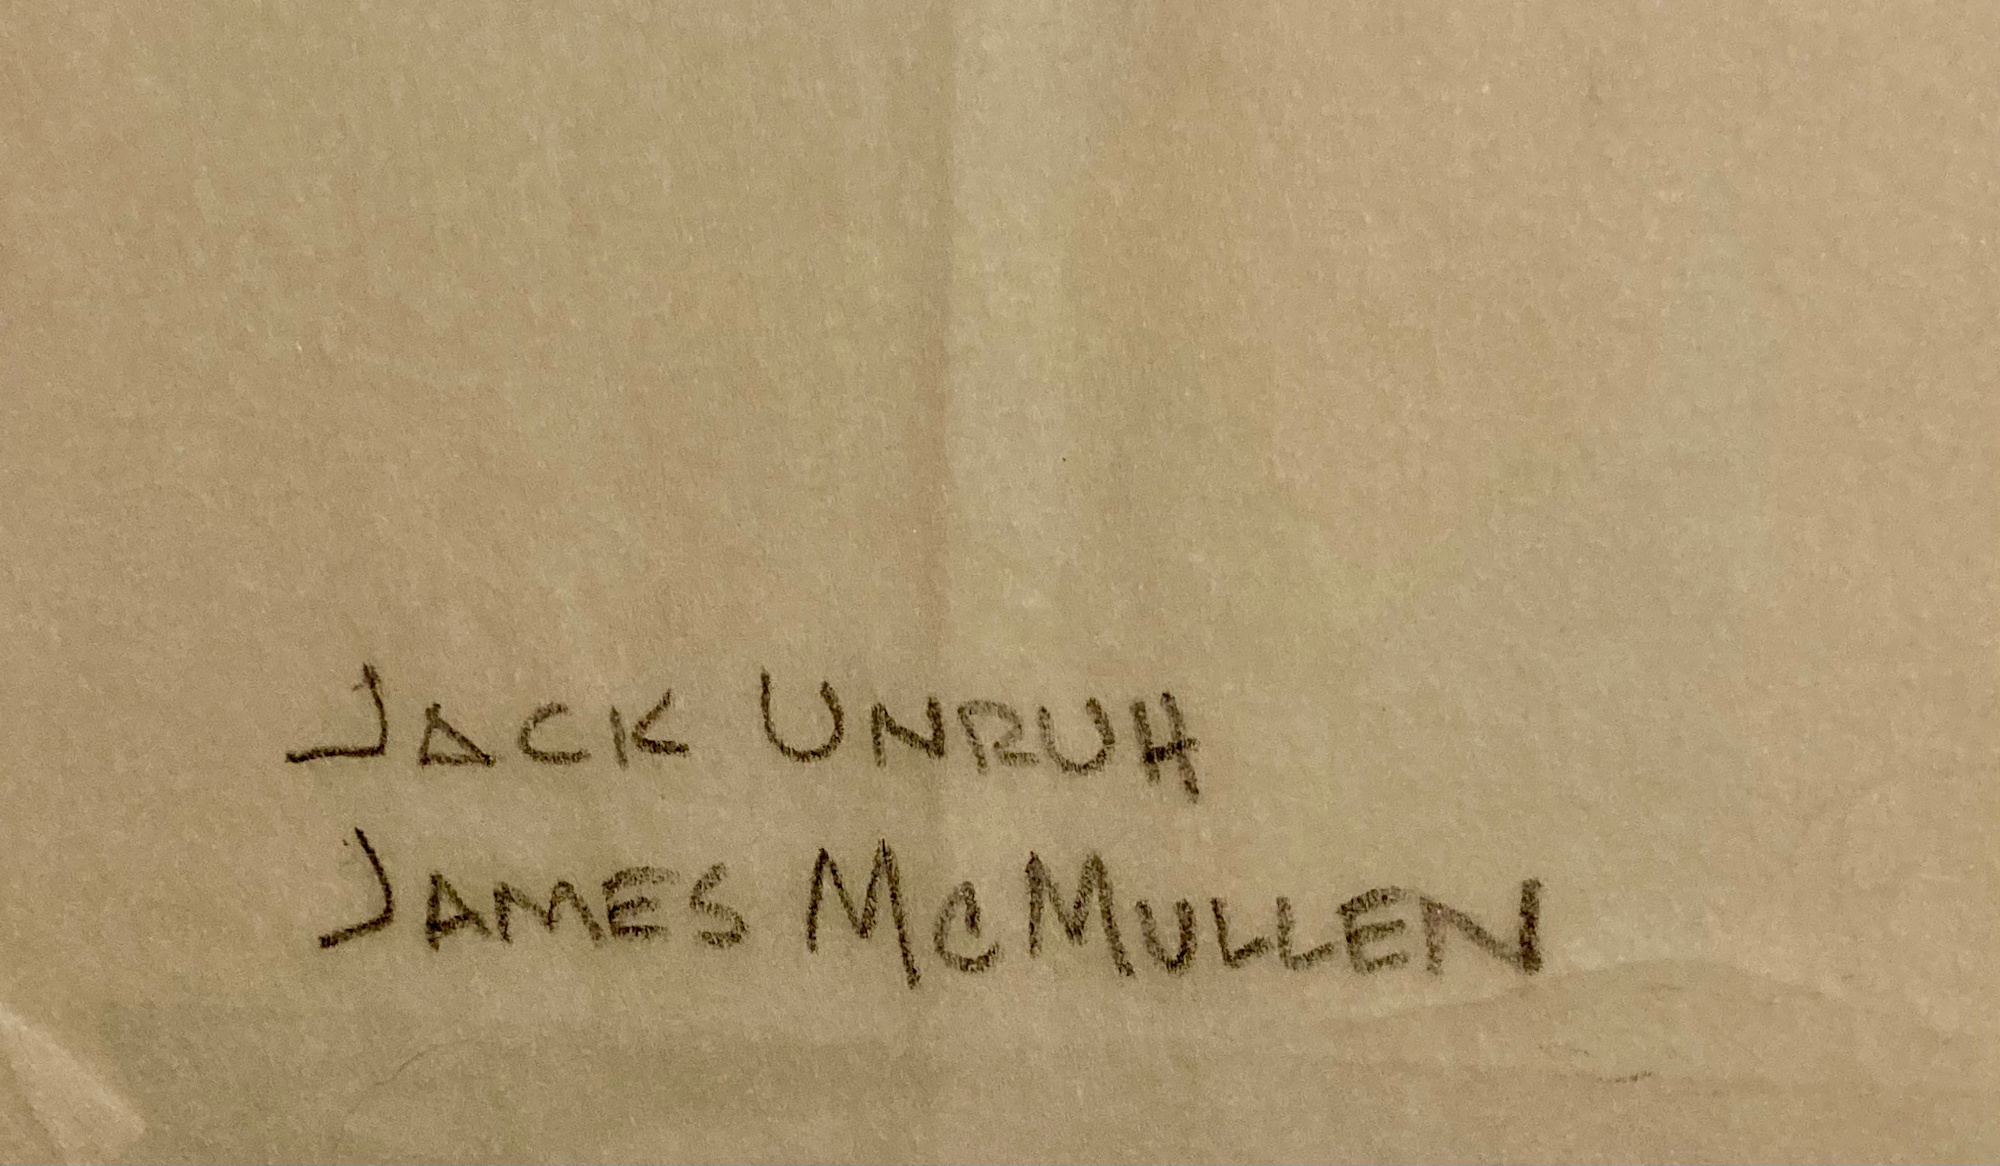 JACK UNRUH
JAMES MCMULLEN